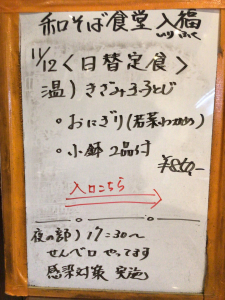 和そば食堂 入福
11/12 <日替定食>
温) きざみ
・おにぎり(若菜わかめ)
・小鉢 2品付
入口こちら
夜の部) 17:30〜
せんべロ やってます
感染対策 実施